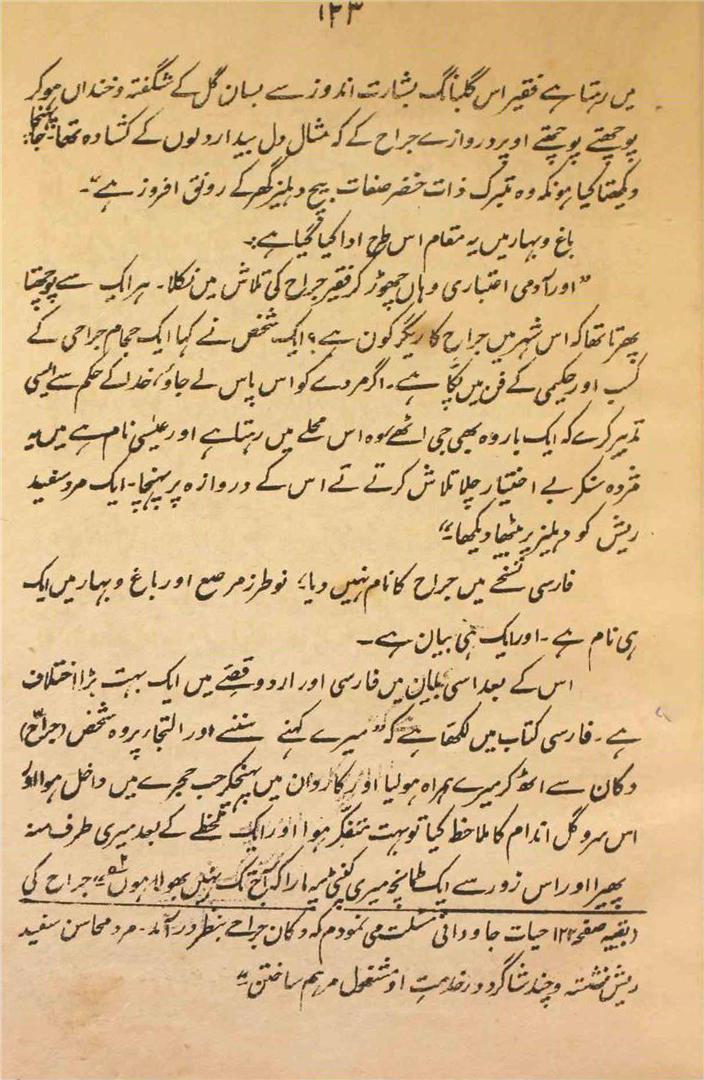 ۱۲۳
میں رہتا ہے فقیر اس گلبانگ بشارت اندوز سے بسان گل کے شگفتہ و خنداں ہو کر
پوچھتے پوچھتے اوپر دروازے جراح کے کہ مثال دل بیداردلوں کے کشادہ تھا۔ جا پہنچا۔
دیکھتا کیا ہوں کہ وہ تبرک ذات خضر صفات بیچ دہلیز گھر کے رونق افروز ہے"۔
باغ و بہار میں یہ مقام اس طرح ادا کیا گیا ہے:۔
"اور آدمی اعتباری وہاں چھوڑ کر فقیر جراح کی تلاش میں نکلا۔ ہر ایک سے پوچھتا
پھرتا تھا کہ اس شہر میں جراح کاریگر کون ہے؟ ایک شخص نے کہا ایک حجام جراحی کے
کسب اور حکیمی کے فن میں پکا ہے۔ اگر مردے کو اس پاس لے جاؤ، خدا کے حکم سے ایسی
تدبیر کرے کہ ایک بار وہ بھی جی اٹھے، وہ اس محلے میں رہتا ہے اور عیسیٰ نام ہے میں یہ
مژدہ سنکر بے اختیار چلا تلاش کرتے تے اس کے دروازہ پر پہنچا۔ ایک مرد سفید
ریش کو دہلیز پر بیٹھا دیکھا۔"
فارسی نسخے میں جراح کا نام نہیں دیا، نو طرز مرصع اور باغ و بہار میں ایک
ہی نام ہے۔ اور ایک ہی بیان ہے۔
اس کے بعد اسی بیان میں فارسی اور اردو قصّے میں ایک بہت بڑا اختلاف
ہے۔ فارسی کتاب میں لکھا ہے کہ "میرے کہنے سننے اور التجا پر وہ شخص (جراح)
دکان سے اٹھ کر میرے ہمراہ ہولیا اور کارواں میں پہنچکر جب حجرے میں داخل ہوا اور
اس سرو گل اندام کا ملاحظہ کیا تو بہت متفکر ہوا اور ایک لحظے کے بعد میری طرف منہ
پھیرا اور اس زور سے ایک طمانچہ میری کنپٹی پر مارا کہ آج تک نہیں بھولا ہوں"۔ جراح کی
(بقیہ صفحہ ۱۲۲) حیات جاودانی مسئلت می نمودم کہ دکان جراحے بنظر درآمد۔ مرد محاسن سفید
ریش نشستہ و چند شاگرد در خدمت او مشغول مرہم ساختن"